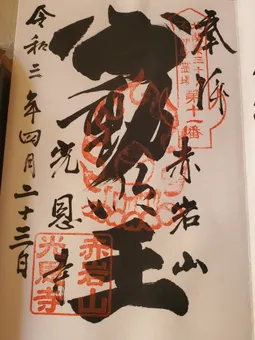 奉拝
赤岩山
第十一番
不動明王
光恩寺
令和三年四月二十三日
赤岩山
光恩寺